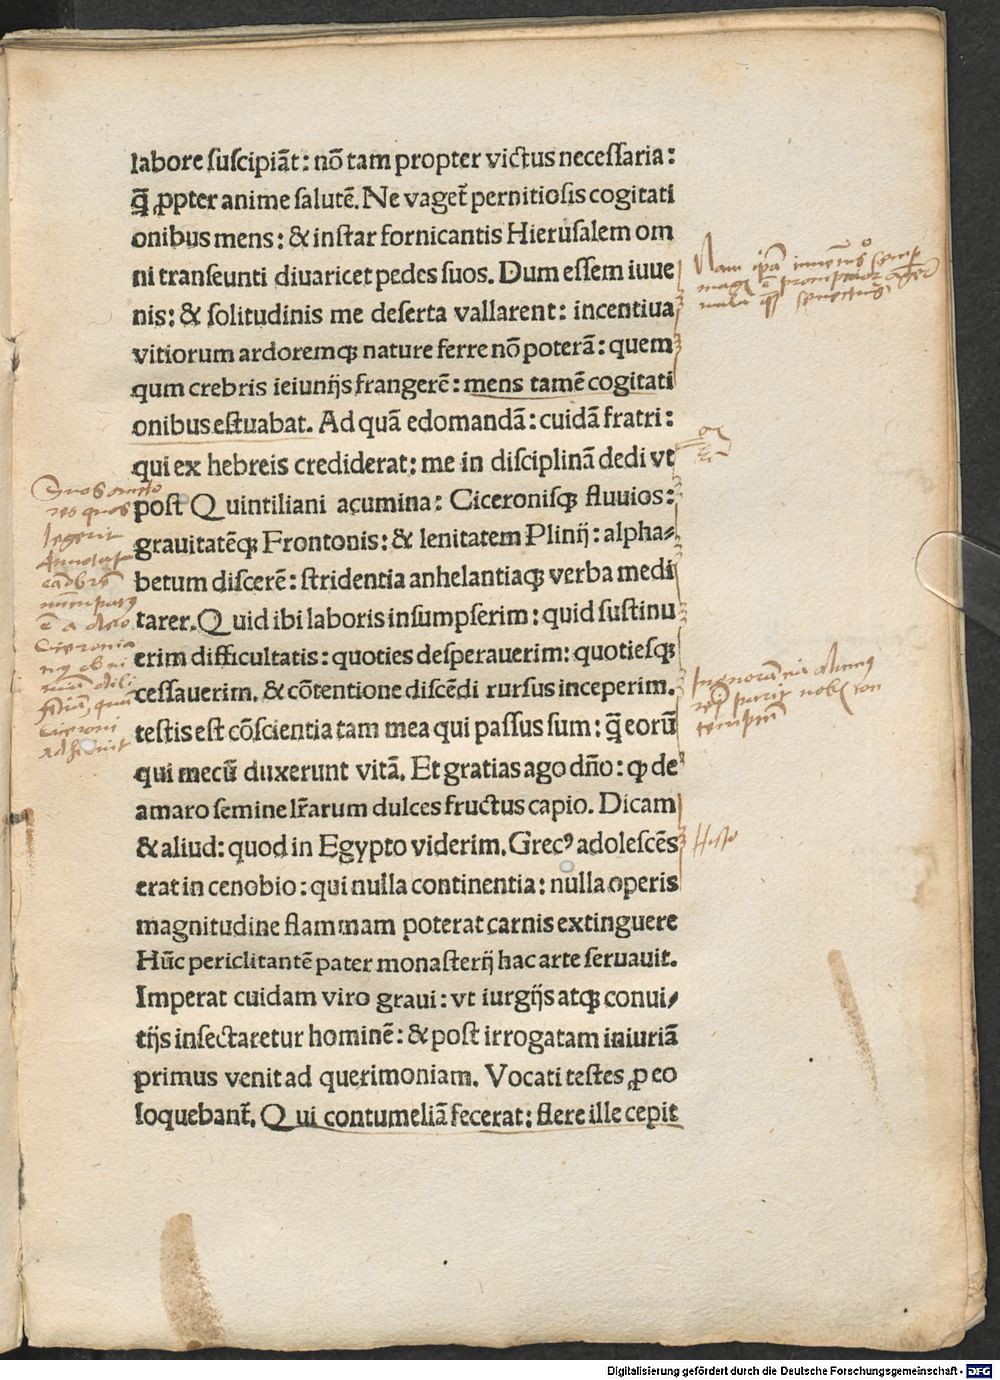 labore suscipiāt: nō tam propter victus necessaria:
q̄ ꝓpter anime salutē. Ne vaget᷑ pernitiosis cogitati
onibus mens: & instar fornicantis Hierusalem om
ni transeunti diuaricet pedes suos. Dum essem iuue
nis: & solitudinis me deserta vallarent: incentiua
vitiorum ardoremqꝫ nature ferre nō poterā: quem
qum crebris ieiunijs frangerē: mens tamē cogitati
onibus estuabat. Ad quā edomandā: cuidā fratri:
qui ex hebreis crediderat: me in disciplinā dedi vt
post Quintiliani acumina: Ciceronisqꝫ fluuios:
grauitatēqꝫ Frontonis: & lenitatem Plinij: alpha-
betum discerē: stridentia anhelantiaqꝫ verba medi
tarer. Quid ibi laboris insumpserim: quid sustinu
erim difficultatis: quoties desperauerim: quotiesqꝫ
cessauerim. & cōtentione discēdi rursus inceperim.
testis est cōscientia tam mea qui passus sum: q̄ eorū
qui mecū duxerunt vitā. Et gratias ago dn̄o: ꝙ de
amaro semine lr̄arum dulces fructus capio. Dicam
& aliud: quod in Egypto viderim. Grecꝰ adolescēs
erat in cenobio: qui nulla continentia: nulla operis
magnitudine flammam poterat carnis extinguere
Hūc periclitantē pater monasterij hac arte seruauit.
Imperat cuidam viro graui: vt iurgijs atqꝫ conui/
tijs insectaretur hominē: & post irrogatam iniuriā
primus venit ad querimoniam. Vocati testes ꝓ eo
loquebant᷑. Qui contumeliā fecerat: flere ille cepit
Nam
legerit
Ciceroni
Histo
Digitalisierung gefördert durch die Deutsche Forschungsgemeinschaft - DFG